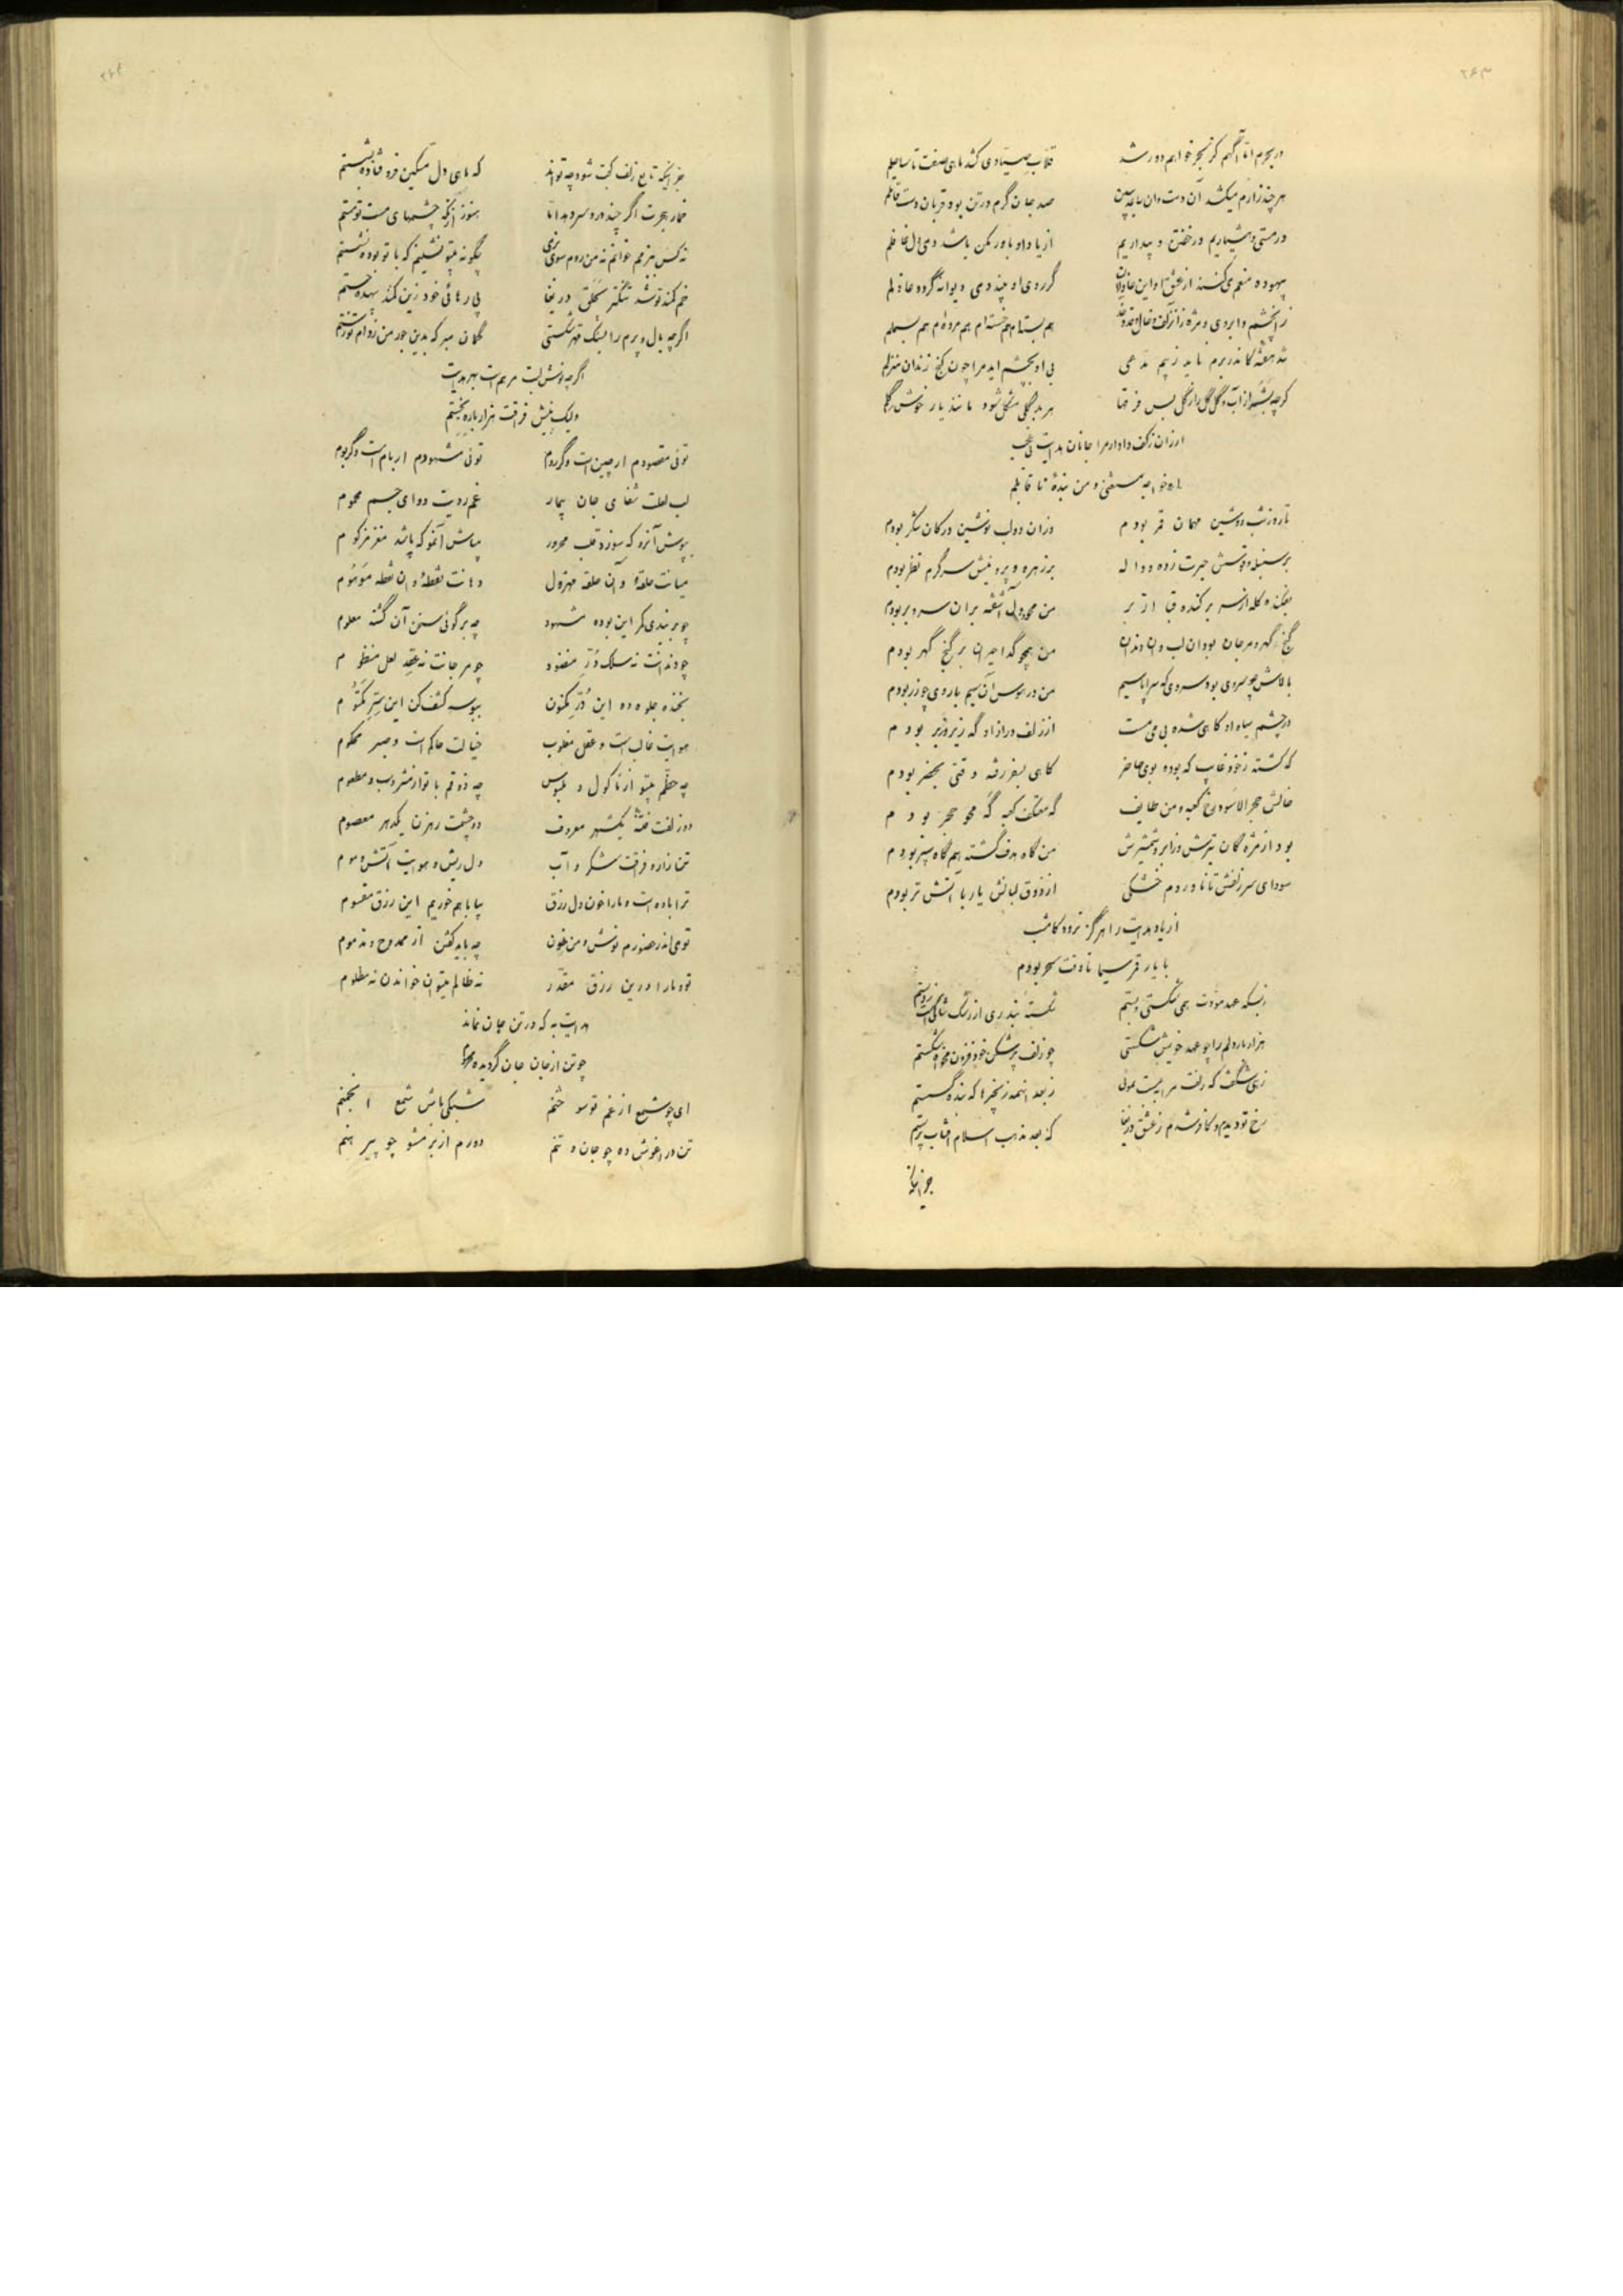 ۲۶۳
در بحرم اما آگهم کز بحر خواهم دور شد قلاب صیادی کشد ماهی صفت تا ساحلم
هر چند زارم میکشد آن دست و آن ساعد ببین صد جان گرم در تن بود قربان دست قاتلم
در مستی و هشیاریم در خفتن و بیداریم از یاد او باور مکن باشد دمی دل غافلم
بیهوده منعم می‌کنند از عشق او این عاقلان گر روی او چند دمی دیوانه گردد عاقلم
زانچشم و ابروی و مژه زانزلف و خال و قد و خد هم بسته‌ام هم خسته‌ام هم مرده‌ام هم بسملم
شد هفته کاندر برم ناید ز بیم مدعی بی او بچشم آید مرا چون کنج زندان منزلم
گرچه بشر از آب و گل گل را ز گل بس فرقها هر بد گلی مشکل شود مانند یار خوش گلم
ارزان ز کف داد ار مرا جانان هدایت نی عجب
او خواجه مستغنی و من بنده ناقابلم
تا روز شب دوشین مهمان قمر بودم وزان دو لب نوشین در کان شکر بودم
بر سنبله و قوسش حیرت زده و واله بر زهره و پروینش سرگرم نظر بودم
بفکنده کله از سر برکنده قبا از بر من محو دل آشفته بران سرو و بر بودم
گنج گهر و مرجان بود آن لب و آن دندان من همچو گدا حیران بر گنج گهر بودم
بالاش چو سروی بود سروی که سراپا سیم من در هوس آن سیم با روی چو زر بودم
در چشم سیاه او گاهی شده بی می مست از زلف دراز او گه زیر و زبر بودم
که گشته ز خود غایب که بوده بوی حاضر گاهی بسفر رفته وقتی بحضر بودم
خالش حجر الاسود رخ کعبه و من طایف گه معتکف کعبه گه محو حجر بودم
بود از مژه‌گان تیرش وز ابرو شمشیرش من گاه هدف گشته هم گاه سپر بودم
سودای سر زلفش تا ناورد م خشکی از ذوق لبانش یار با آتش تر بودم
از یاد هدایت را هرگز نرود کامشب
با یار قمر سیما تا وقت سحر بودم
زبسکه عهد مودت همی شکستی و بستم
هزار بار دلم را چو عهد خویش شکستی چو زلف پرشکن خود فزون مخواه شکستم
زهی شگفت که زلفت مرا ببست بموئی ز بعد اینهمه زنجیرها که بنده گسستم
رخ تو دیدم و کافر شدم ز عشق دریغا که بعد مذهب اسلام آفتاب پرستم
جز اینکه
۲۶۴
جز اینکه تابع زلف کجت شود چه تواند که ماهی دل مسکین فرو فتاده بشستم
خمار هجرت اگر چند درد سر دهد اما هنوز از نگه چشمهای مست تو مستم
چگونه بیتو نشینم که با تو بوده نشستم
خم کمند تو شد تنگتر بحلق دریغا پی رهائی خود زین کمند بیهده جستم
اگرچه بال و پرم را بسنگ قهر شکستی گمان مبر که بدین جور من ز دام تو رستم
اگرچه نوش لبت مرهم است بهر هدایت
ولیک نیش فراقت هزار باره بخستم
توئی مقصودم ار چین است و گر روم توئی مشهودم ار بام است و گر بوم
لب لعلت شفای جان بیمار غم رویت دوای جسم محموم
بپوش آنرو که سوزد قلب محرور مپاش آنمو که پاشد مغز مزکوم
میانت حلقه و آن حلقه مهزول دهانت نقطه و ان نقطه موهوم
چو بربندی کمر این بوده مشهود چه برگوئی سخن آن گشته معلوم
چو دندانت نه سلک در منضود چو مرجانت نه عقد لعل منظوم
بخنده جلوه ده این در مکنون ببوسه کشف کن این سر مکتوم
هوایت غالب است و عقل مغلوب خیالت حاکم است و صبر محکوم
چه حظم بیتو از مأکول و ملبوس چه ذوقم با تو از مشروب و مطعوم
دو زلفت فتنهٔ یکشهر معروف دو چشمت رهزن یکدهر معصوم
تن زار و فراقت شکر و آب دل ریش و هوایت آتش و موم
ترا باده است و مارا خون دل رزق بیا با هم خوریم این رزق مقسوم
تو می اندر حضورم نوش و من خون چه باید گفتن از ممدوح و مذموم
تو و ما را درین رزق مقدر نه ظالم میتوان خواندن نه مظلوم
هدایت به که در تن جان نماند
چو تن از جان جان گردیده محروم
ای چو شمع از غم تو سوختنم شبکی باش شمع انجمنم
تن در آغوش ده چو جان و تنم دورم از بر مشو چو پیرهنم